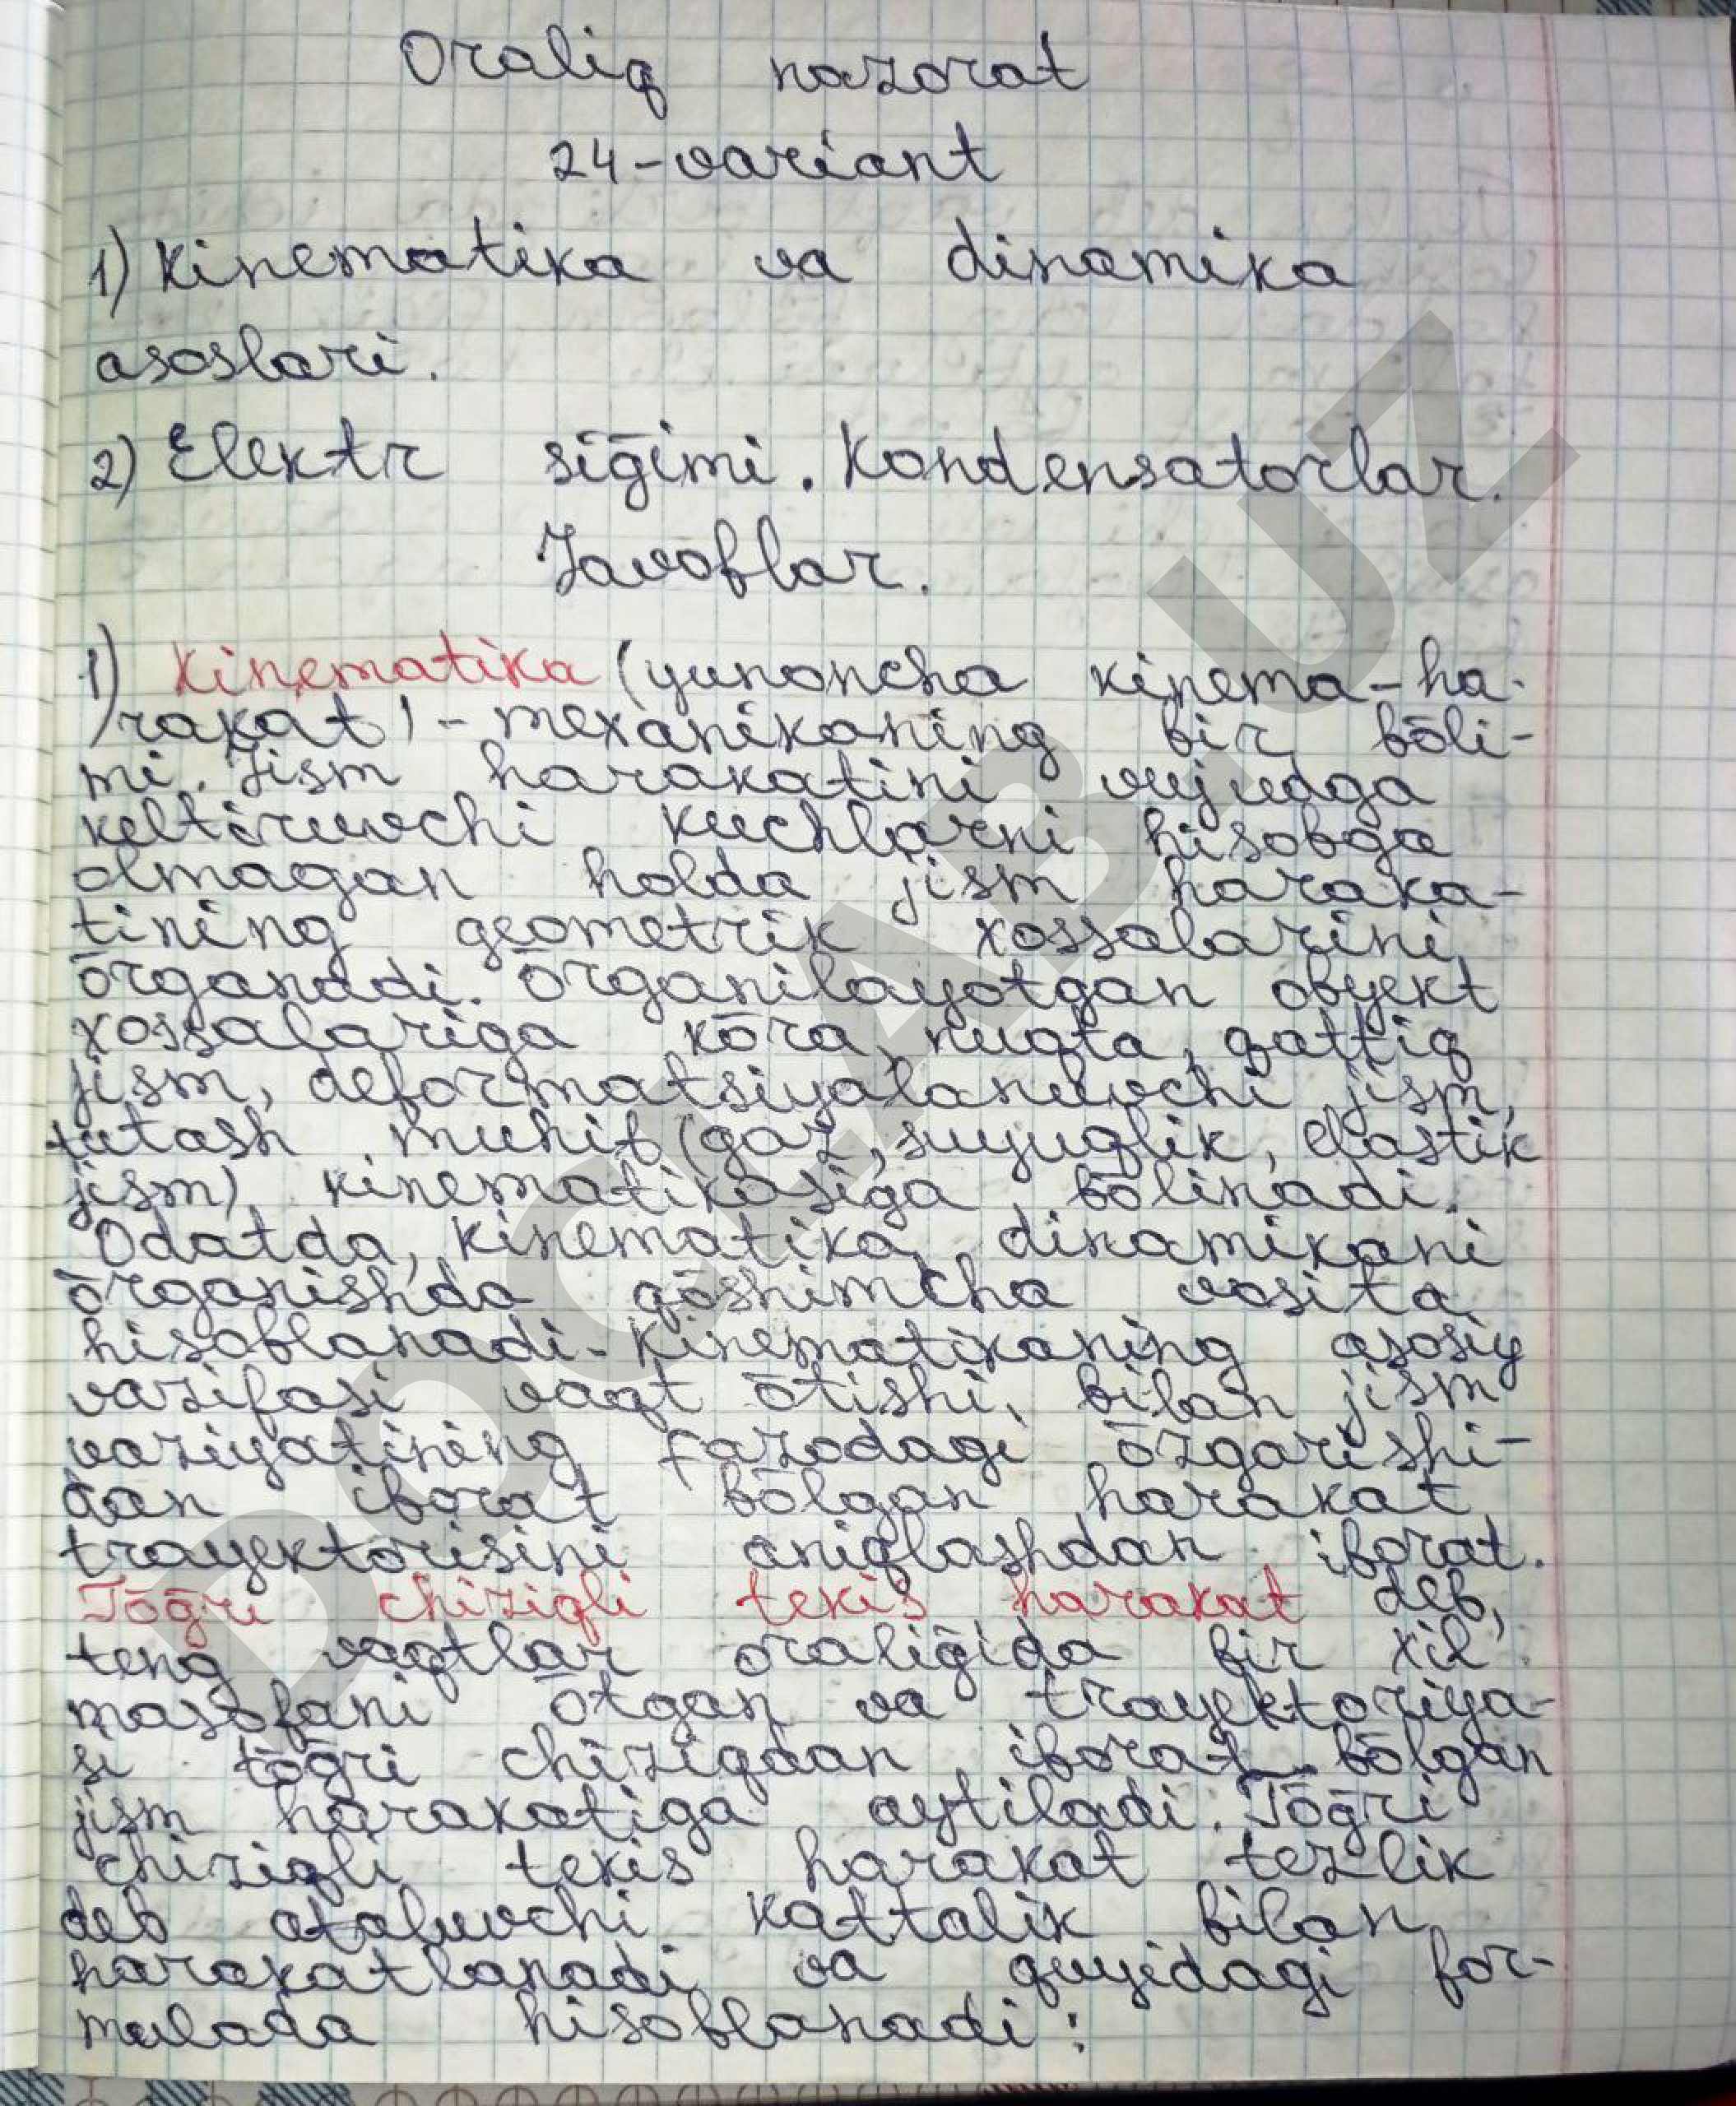 Oraliq nazorat
24-variant
1) Kinematika va dinamika
asoslari.
2) Elektr siḡimi. Kondensatorlar.
Javoblar.
1) Kinematika (yunoncha kinema-ha-
rakat) - mexanikaning bir bōli-
mi. Jism harakatini vujudga
keltiruvchi kuchlarni hisobga
olmagan holda jism haraka-
tining geometrik xossalarini
ōrganadi. Ōrganilayotgan obyekt
xossalariga kōra, nuqta, qattiq
jism, deformatsiyalanuvchi jism,
tutash muhit (gaz, suyuqlik, elastik
jism) kinematikasiga bōlinadi.
Odatda, kinematika dinamikani
ōrganishda qōshimcha vosita
hisoblanadi. Kinematikaning asosiy
vazifasi vaqt ōtishi bilan jism
vaziyatining fazodagi ōzgarishi-
dan iborat bōlgan harakat
trayektorisini aniqlashdan iborat.
Tōḡri chiziqli tekis harakat deb,
teng vaqtlar oraliḡida bir xil
masofani ōtgan va trayektoriya-
si tōḡri chiziqdan iborat bōlgan
jism harakatiga aytiladi. Tōḡri
chiziqli tekis harakat tezlik
deb ataluvchi kattalik bilan
harakatlanadi va quyidagi for-
mulada hisoblanadi:
DOCLAB.UZ